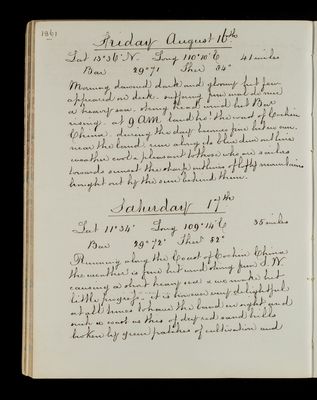 1861
Friday August 16th
Lat 13°36' N. Long 110°10' E 41 miles
Bar 29°71 Ther 84°
Morning dawned dark and gloomy but few
appeared on deck
a heavy sea. strong head wind but Bar
rising. at 9 A.M. land ho! the coast of Cochin
China. during the day became fine but we can
near the land run along its blue dim outline
weather cool & pleasant to those who are sailors
towards sunset the sharp outlines of lofty mountains
brought out by the sun behind them.
Saturday 17th
Lat 11°34' Long 109°14' E 35 miles
Bar 29°72' Ther 82°
Running along the Coast of Cochin China
the weather is fine but wind strong from S.W
causing a short heavy sea & we make but
little progress - it is however very delightful
at all times to have the land in sight and
such a coast as this of deep red sand hills
broken by green patches of cultivation and